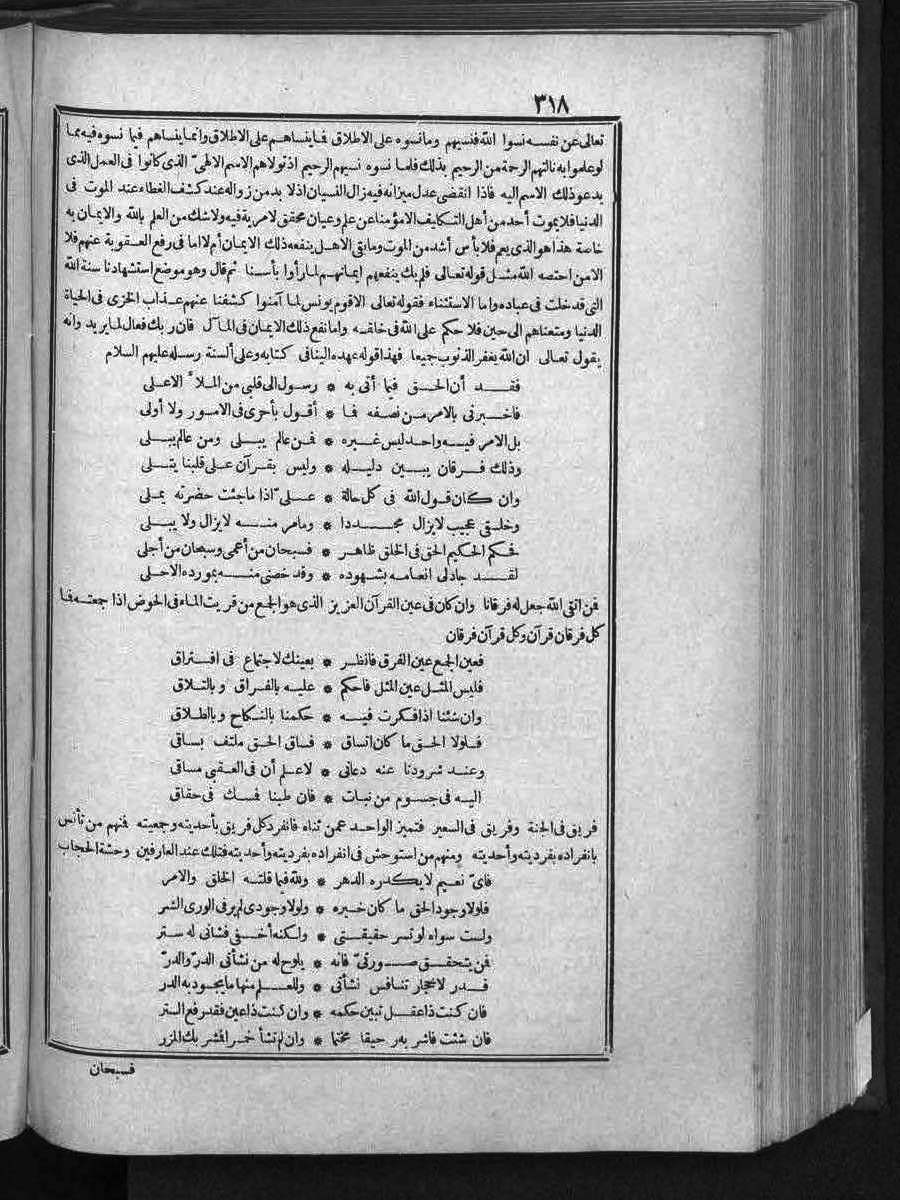 ٣١٨
تعالى عن نفسه نسوا الله فنسيهم وما نسوه على الاطلاق فما ينساهم على الاطلاق وانما ينساهم فيما نسوه فيه مما
لو عاموا به نالتهم الرحمة من الرحيم بذلك فلما نسوه نسيهم الرحيم اذ تولاهم الاسم الالهىّ الذى كانوا فى العمل الذى
يدعو ذلك الاسم اليه فاذا انقضى عدل ميزانه فيه زال النسيان اذ لا بد من زواله عند كشف الغطاء عند الموت فى
الدنيا فلا يموت أحد من أهل التكليف الا مؤمنا عن علم وعيان محقق لا مرية فيه ولا شك من العلم بالله والايمان به
خاصة هذا هو الذى يعم فلا بأس أشد من الموت وما بقى الا هل ينفعه ذلك الايمان أم لا اما فى رفع العقوبة عنهم فلا
الا من اختصه الله مثل قوله تعالى فلم يك ينفعهم ايمانهم لما رأوا بأسنا ثم قال وهو موضع استشهادنا سنة الله
التى قد خلت فى عباده واما الاستثناء فقوله تعالى الا قوم يونس لما آمنوا كشفنا عنهم عذاب الخزى فى الحياة
الدنيا ومتعناهم الى حين فلا حكم على الله فى خلقه واما نفع ذلك الايمان فى المآل فان ربك فعال لما يريد وانه
يقول تعالى ان الله يغفر الذنوب جميعا فهذا قوله عهده الينا فى كتابه وعلى ألسنة رسله عليهم السلام
فقد أن الحق فيما أتى به * رسول الى قلبى من الملأ الاعلى
فاخبرنى بالامر من نصفه فما * أقول بأحرى فى الامور ولا أولى
بل الامر فيه واحد ليس غيره * فمن عالم يبلى ومن عالم يبلى
وذلك فرقان يبين دليله * وليس بقرآن على قلبنا يتلى
وان كان قول الله فى كل حالة * علىّ اذا ما جئت حضرته يملى
وخلقى عجيب لا يزال مجددا * وما مر منه لا يزال ولا يبلى
فحكم الحكيم الحق فى الخلق ظاهر * فسبحان من أعمى وسبحان من أجلى
لقد جاد لى انعامه بشهوده * وقد خصنى منه بمورده الاحلى
فمن اتقى الله جعل له فرقانا وان كان فى عين القرآن العزيز الذى هو الجمع من قريت الماء فى الحوض اذا جمعته فما
كل فرقان قرآن وكل قرآن فرقان
فعين الجمع عين الفرق فانظر * بعينك لاجتماع فى افتراق
فليس المثل عين المثل فاحكم * عليه بالفراق وبالتلاق
وان شئنا اذا فكرت فيه * حكمنا بالنكاح وبالطلاق
فلولا الحق ما كان اتساق * فساق الحق ملتف بساقى
وعند شرودنا عنه دعانى * لاعلم أن فى العقبى مساقى
اليه فى جسوم من نبات * فان طبنا فمسك فى حقاق
فريق فى الجنة وفريق فى السعير فتميز الواحد عمن ثناه فانفرد كل فريق بأحديته وجعيته فمنهم من تأنس
بانفراده بفرديته وأحديته ومنهم من استوحش فى انفراده بفرديته وأحديته فتلك عند العارفين وحشة الحجاب
فاىّ نعيم لا يكدره الدهر * ولله فيما قلته الخلق والامر
فلولا وجود الحق ما كان خبره * ولولا وجودى لم ير فى الورى الشر
ولست سواه لو تسر حقيقتى * ولكنه أخفى فشانى له ستر
فمن يتحقق صورتىّ فانه * يلوح له من نشأتى الدرّ والدرّ
فدر لاحجار تنافس نشأتى * وللعلم منها ما يجود به الدر
فان كنت ذا عقل تبين حكمه * وان كنت ذا عين فقد رفع الستر
فان شئت فاشر به رحيقا مختما * وان لم تشأ خمرا فشر بك المزر
فسبحان